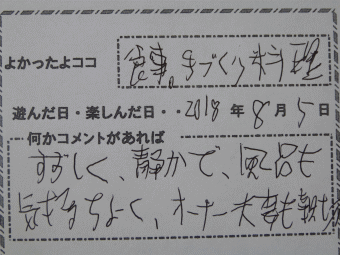 よかったよココ 食事。手づくり料理
遊んだ日・楽しんだ日・・2018年8月5日
何かコメントがあれば
すずしく、静かで、風呂も
気もちよく、オーナー夫妻も親も